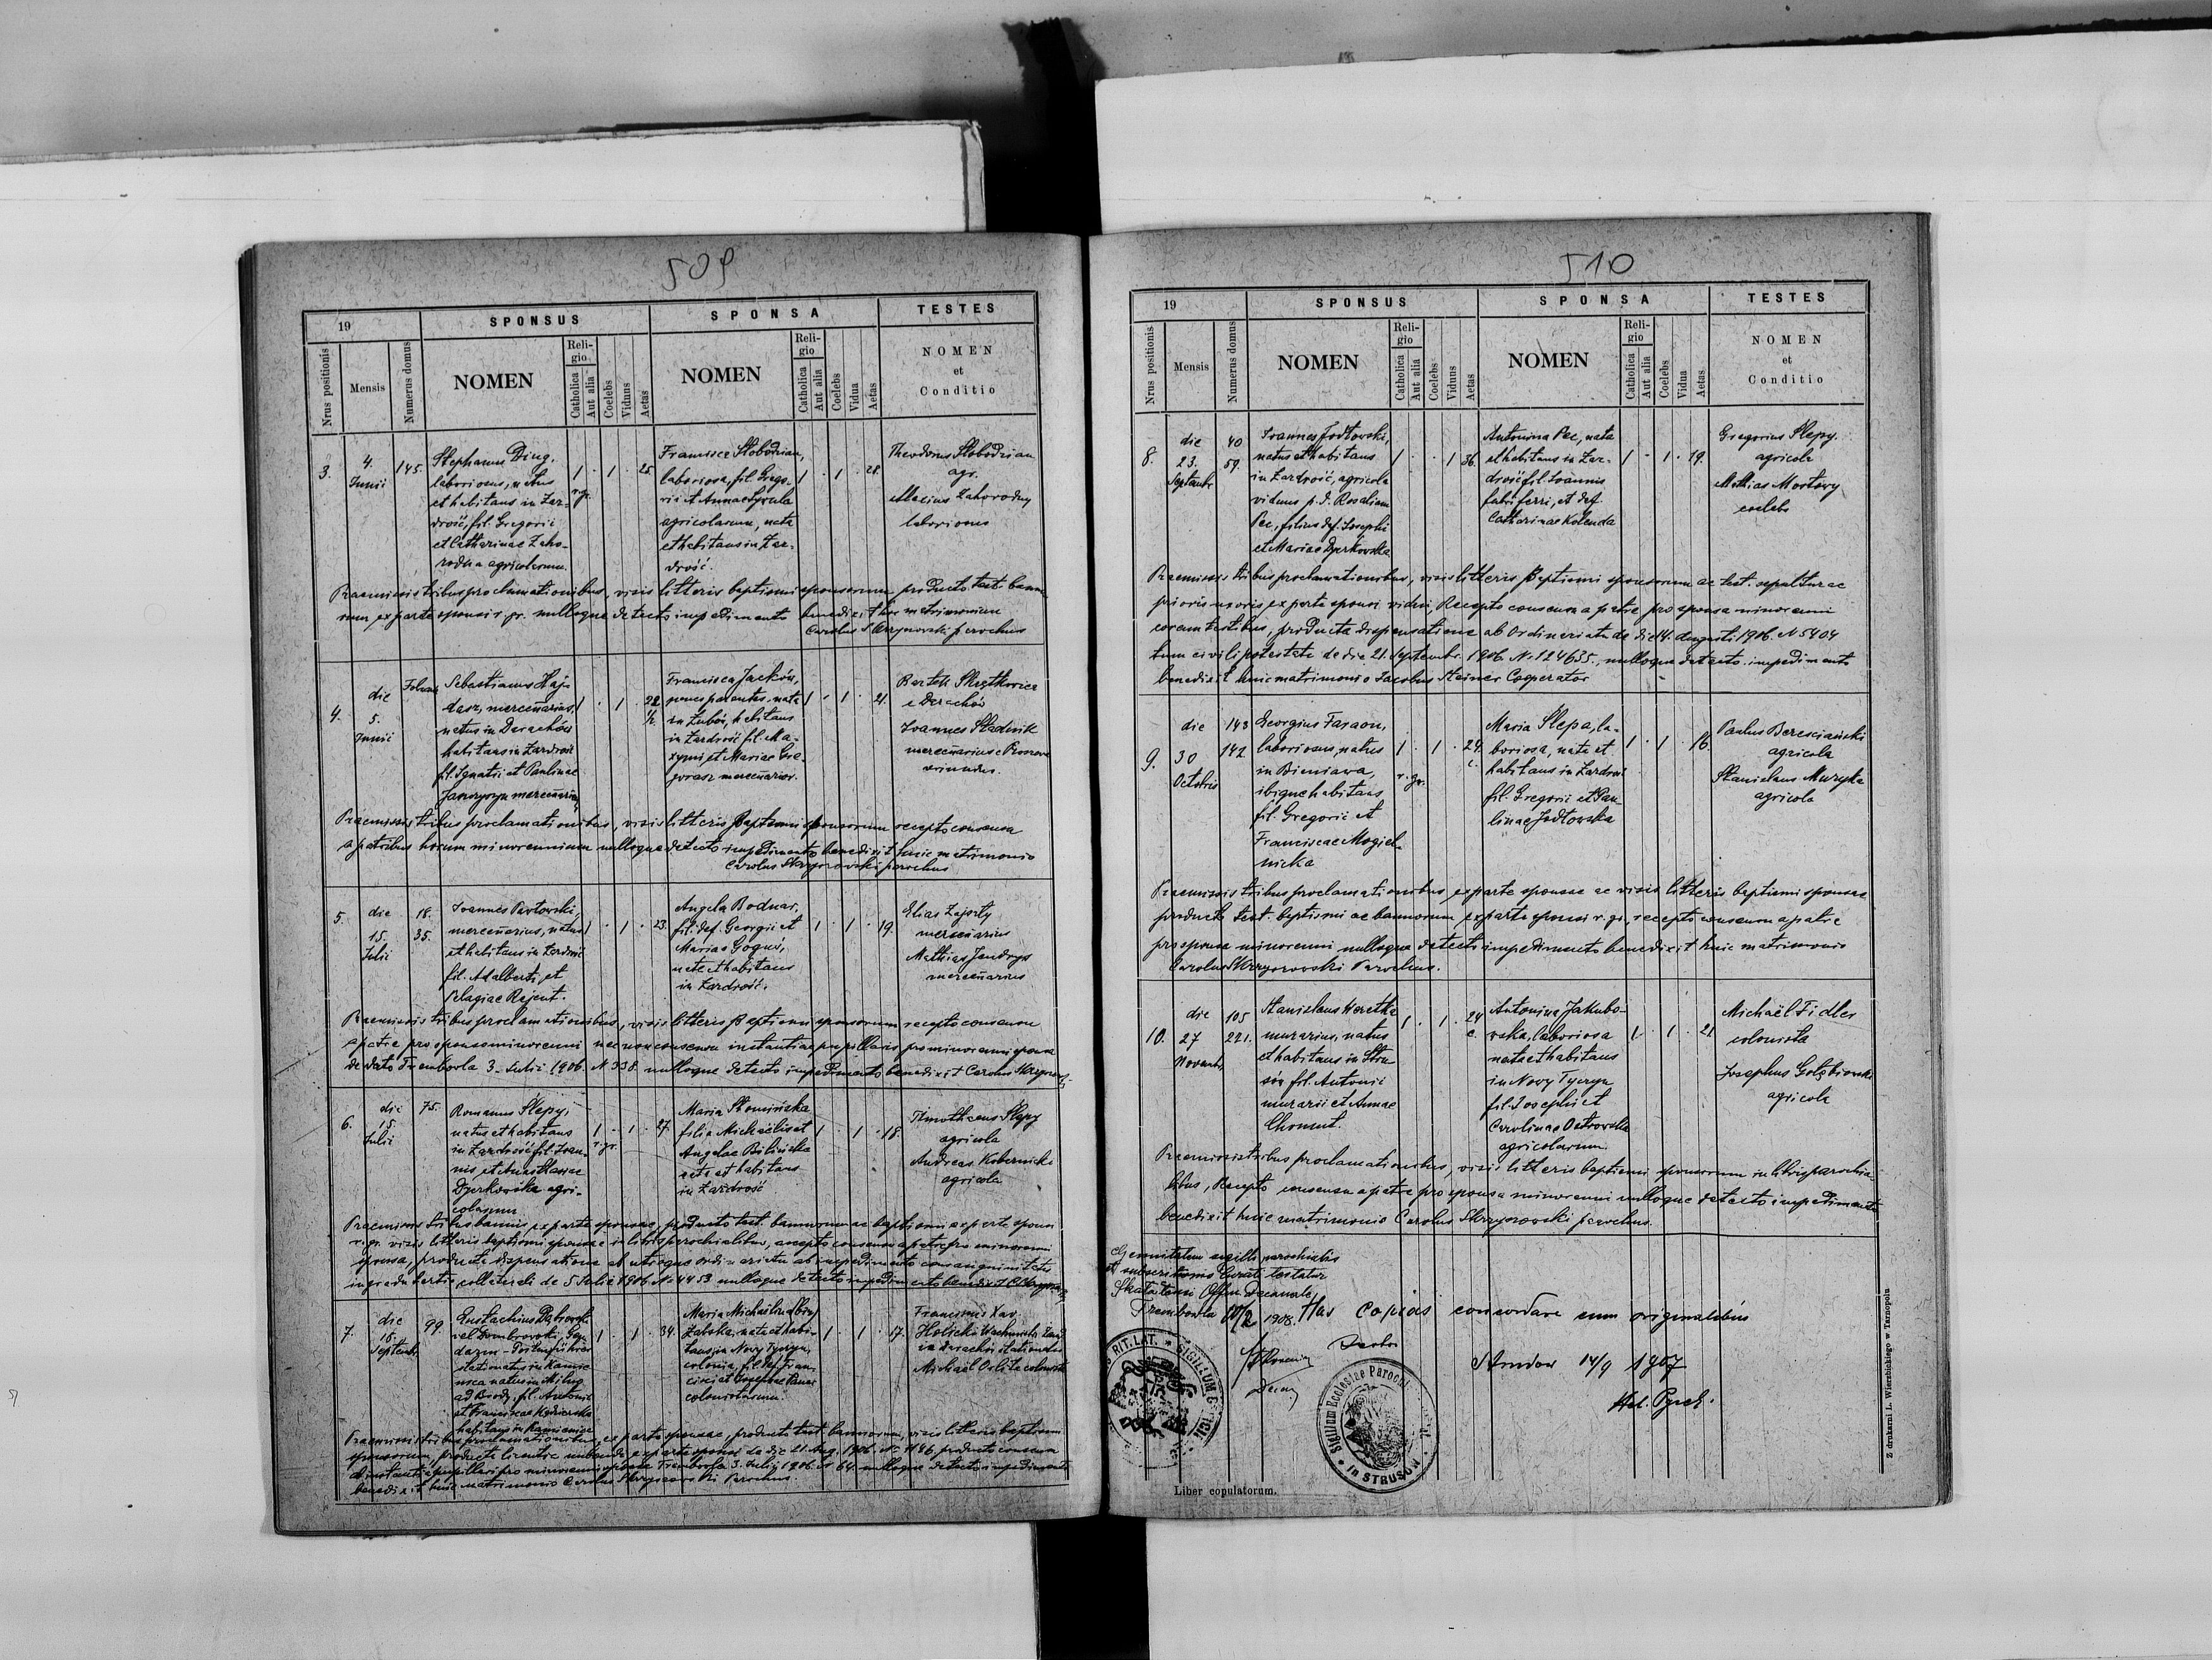 509
19
SPONSUS
SPONSA
TESTES
Nrus positionis
Mensis
Numerus domus
NOMEN
Religio
Catholica
Aut alia
Coelebs
Viduus
Aetas
NOMEN
Religio
Catholica
Aut alia
Coelebs
Vidua
Aetas
NOMEN
et
Conditio
3. 4. Junii 145.
Stephanus Diug,
laboriosus, natus
et habitans in Zaz-
drość, fil. Gregorii
et Catharinae Zaho-
rodna agricolarum.
1 r. gr. 1 25
Francisca Słobodzian,
laboriosa, fil. Grego-
rii et Annae
agricolarum, nata
et habitans in Zaz-
drość.
1 1 28.
Theodorus Słobodzian
agr.
Zahorodny
laboriosus
Praemissis tribus proclamationibus, visis litteris baptismi sponsorum, producto test. banno-
rum ex parte sponsi r. gr. nulloque detecto impedimento benedixit huic matrimonium
Carolus Skrzyszowski parochus
4. die 5. Junii
Sebastianus Haj-
dasz, mercenarius,
natus in Darachów
habitans in Zazdrość
fil. Ignatii et Paulinae
mercenarior.
1 1 22 1/2
Francisca Jacków,
penes parentes, nata
in habitans
in Zazdrość fil. Ma-
xymi et Mariae Gre-
gorasz mercenarior.
1 1 21.
e Darachów
Joannes Stadnik
mercenarius e
oriundus.
Praemissis tribus proclamationibus, visis litteris Baptismi sponsorum recepto consensu
a patribus horum minorennium nulloque detecto impedimento benedixit huic matrimonio
Carolus Skrzyszowski parochus
5. die 15. Julii 18. 35.
Joannes Pawłowski,
mercenarius, natus
et habitans in Zazdrość
fil. Adalberti et
Pelagiae Rejent.
1 1 23.
Angela Bodnar,
fil. def. Georgii et
Mariae
nata et habitans
in Zazdrość.
1 1 19.
Elias Zaposty
mercenarius
Mathias Jendrys
mercenarius
Praemissis tribus proclamationibus, visis litteris Baptismi sponsorum recepto consensu
a patre pro sponso minorenni nec non consensu instantiae pupillaris pro minorenni sponsa
de dato Trembowla 3. Julii 1906. N 338. nulloque detecto impedimento benedixit Carolus
6. die 15. Julii 75.
Romanus Ślepy,
natus et habitans
in Zazdrość fil. Joan-
nis et Anastasiae
Dyrkowska agri-
colarum
1 r. gr. 1 27.
Maria Słomińska
filia Michaelis et
Angelae Bilińska
nata et habitans
in Zazdrość
1 1 18.
Timotheus Ślepy
agricola
Andreas Kobernicki
agricola
Praemissis tribus bannis ex parte sponsae, producto test. bannorum ac baptismi ex parte sponsi
r. gr. visis litteris baptismi sponsae in libris parochialibus, accepto consensu a patre pro minorenni
sponsa, producta dispensatione ab utroque ordinariatu ab impedimento consanguinitatis
in gradu tertio collaterali de 5 Julii 1906 N. 4453 nulloque detecto impedimento benedixit
7. die 16. Septembr. 99.
Eustachius Dąbrowski
vel Dombrowski, Gen-
darm-Postenführer
stationatus in Kamie-
nica natus in
ad Brody, fil. Antonii
et Franciscae
habitans in Kamienica
1 1 34.
Maria Michaelina
Żabska, nata et habi-
tans in Nowy Tyczyn,
colonia, fil. def. Fran-
cisci et Josephae
colonistarum.
1 1 17.
Franciscus Xav.
Holicki Wachmistr.
in Darachów stationatus
Michaël Orlita colonista
Praemissis tribus proclamationibus, ex parte sponsae, producto test. bannorum, visis litteris baptismi
sponsorum, producta licentia nubendi ex parte sponsi de die 21. Aug. 1906. producto consensu
ab instantia pupillari pro minorenni sponsa Trembowla 3. Julii 1906. N 64. nulloque detecto impedimento
benedixit huic matrimonio Carolus Skrzyszowski Parochus.
510
19
SPONSUS
SPONSA
TESTES
Nrus positionis
Mensis
Numerus domus
NOMEN
Religio
Catholica
Aut alia
Coelebs
Viduus
Aetas
NOMEN
Religio
Catholica
Aut alia
Coelebs
Vidua
Aetas
NOMEN
et
Conditio
8. die 23. Septembr 40 59.
Joannes Jodłowski,
natus et habitans
in Zazdrość, agricola
viduus p. d. Rosaliam
Pec, filius def. Josephi
et Mariae Dyrkowska
1 1 36.
Antonina Pec, nata
et habitans in Zaz-
drość fil. Joannis
fabri ferri, et def.
Catharinae Kolenda
1 1 19.
Gregorius Ślepy.
agricola
Mathias Mostowy
coelebs
Praemissis tribus proclamationibus, visis litteris Baptismi sponsorum ac test. sepulturae
prioris uxoris ex parte sponsi vidui, Recepto consensu a patre pro sponsa minorenni
coram testibus, producta dispensatione ab Ordinariatu de die 14. Augusti 1906. N 5404
tum civili potestate de die 21. Septembr. 1906 N. 124635., nulloque detecto impedimento
benedixit huic matrimonio Jacobus Steiner Cooperator
9. die 30 Octobris 143 142
Georgius Faraon,
laboriosus, natus
in Bieniawa,
ibique habitans
fil. Gregorii et
Franciscae Mogiel-
nicka
1 r. gr. 1 24.
Maria Ślepa, la-
boriosa, nata et
habitans in Zazdrość
fil. Gregorii et Pau-
linae Jodłowska
1 1 16.
Paulus Beresciański
agricola
Stanislaus Muzyka
agricola
Praemissis tribus proclamationibus, ex parte sponsae ac visis litteris baptismi sponsae
producto test. baptismi ac bannorum ex parte sponsi r. gr., recepto consensu a patre
pro sponsa minorenni nulloque detecto impedimento benedixit huic matrimonio
Carolus Skrzyszowski Parochus.
10. die 27 Novembr 105 221.
Stanislaus
murarius, natus
et habitans in Stru-
sów fil. Antonii
murarii et Annae
Chomut.
1 1 24
Antonina Jakubo-
wska, laboriosa
nata et habitans
in Nowy Tyczyn
fil. Josephi et
Carolinae Ostrowska
agricolarum
1 1 21
Michaël Fidler
colonista
Josephus Gołębiowski
agricola
Praemissis tribus proclamationibus, visis litteris baptismi sponsorum in libris parochia-
libus, Recepto consensu a patre pro sponsa minorenni nulloque detecto impedimento
benedixit huic matrimonio Carolus Skrzyszowski parochus.
Genuitatem sigilli parochialis
et subscriptionis Curati testatur
Officium Decanale
Trembowla 10/2 1908.
Has Copias concordare cum originalibus
testor
Strusów 14/9 1907
Sigillum Ecclesiae Paroch
in STRUSÓW
RIT. LAT. * SIGILLUM
Liber copulatorum.
Z drukarni L. Wierzbickiego w Tarnopolu